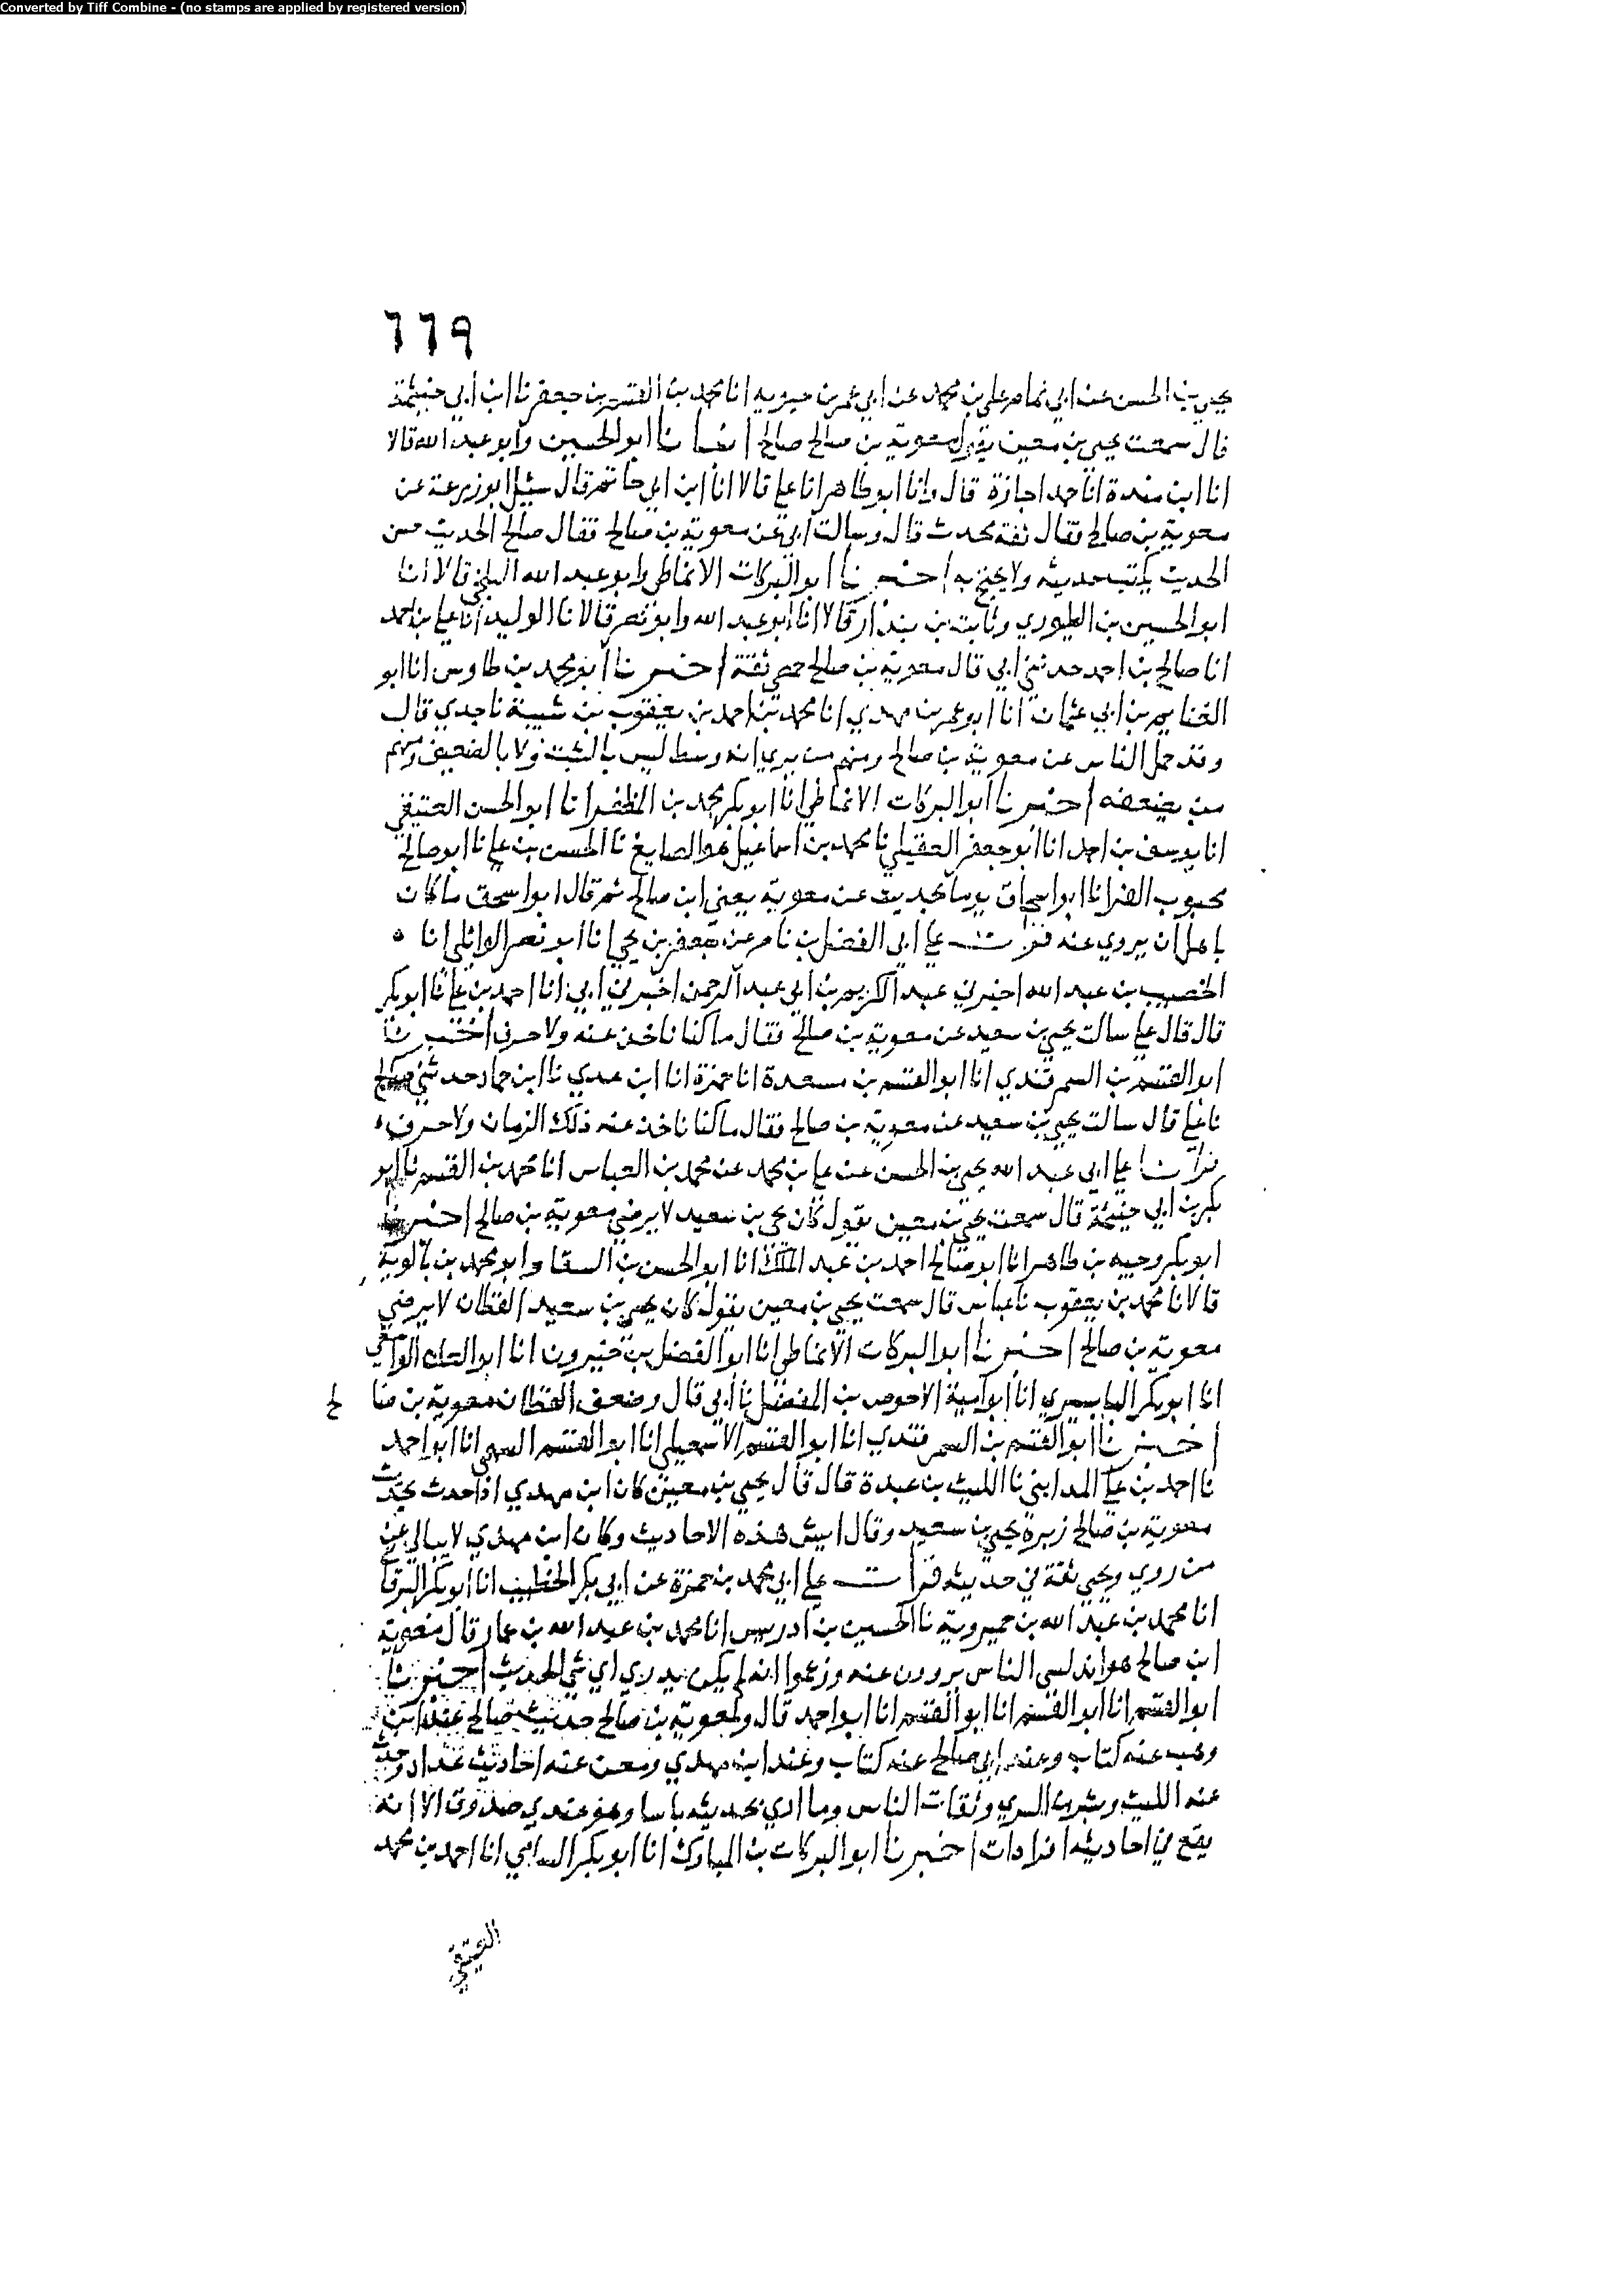 Converted by Tiff Combine - (no stamps are applied by registered version)
٦٦٩
يحيى بن الحسن عن ابي تمام علي بن محمد عن ابي عمر بن حيويه انا محمد بن القسم بن جعفر نا ابن أبي خيثمة
قال سمعت يحيى بن معين يقول معوية بن صالح صالح انبانا ابو الحسين وابو عبد الله قالا
انا ابن مندة انا حمد اجازة قال وانا ابو طاهر انا علي قالا انا ابن ابي حاتم قال سئل ابو زرعة عن
معوية بن صالح فقال ثقة محدث قال وسالت ابي عن معوية بن صالح فقال صالح الحديث حسن
الحديث يكتب حديثه ولا يحتج به اخبرنا ابو البركات الانماطي وابو عبد الله البلخي قالا انا
ابو الحسين بن الطيوري وثابت بن بندار قالا انا ابو عبد الله وابو نصر قالا نا الوليد انا علي بن احمد
انا صالح بن احمد حدثني ابي قال معوية بن صالح حمصي ثقة اخبرنا ابو محمد بن طاوس انا ابو
الغنايم بن ابي عثمان انا ابو عمر بن مهدي انا محمد بن احمد بن يعقوب بن شيبة نا جدي قال
وقد حمل الناس عن معوية بن صالح ومنهم من يري انه وسط ليس بالثبت ولا بالضعيف ومنهم
من يضعفه اخبرنا ابو البركات الانماطي انا ابو بكر محمد بن المظفر انا ابو الحسن العتيقي
انا يوسف بن احمد انا ابو جعفر العقيلي نا محمد بن اسماعيل هو الصايغ نا الحسن بن علي نا ابو صالح
محبوب الفرا نا ابو اسحاق يوما بحديث عن معوية يعني ابن صالح ثم قال ابو اسحق ما كان
باهل ان يروي عنه قرات علي ابي الفضل بن ناصر عن جعفر بن يحيى انا ابو نصر الوائلي انا
الخصيب بن عبد الله اخبرني عبد الكريم بن ابي عبد الرحمن اخبرني ابي انا احمد بن علي نا ابو بكر
قال قال علي سالت يحيى بن سعيد عن معوية بن صالح فقال ما كنا ناخذ عنه ولا حرف اخبرنا
ابو القسم بن السمرقندي انا ابو القسم بن مسعدة انا حمزة انا ابن عدي نا ابن حماد حدثني صالح
نا علي قال سالت يحيى بن سعيد عن معوية بن صالح فقال ما كنا ناخذ عنه ذلك الزمان ولا حرف
قرانا علي ابي عبد الله يحيى بن الحسن عن علي بن محمد عن محمد بن العباس انا محمد بن القسم نا ابو
بكر بن ابي خيثمة قال سمعت يحيى بن معين يقول كان يحيى بن سعيد لا يرضي معوية بن صالح اخبرنا
ابو بكر وجيه بن طاهر انا ابو صالح احمد بن عبد الملك انا ابو الحسن بن السقا وابو محمد بن بالوية
قالا نا محمد بن يعقوب نا عباس قال سمعت يحيى بن معين يقول كان يحيى بن سعيد القطان لا يرضي
معوية بن صالح اخبرنا ابو البركات الانماطي انا ابو الفضل بن خيرون انا ابو العلاء الواسطي
انا ابو بكر البابسيري انا ابو امية الاحوص بن المفضل نا أبي قال وضعف القطان معوية بن صالح
اخبرنا ابو القسم بن السمرقندي انا ابو القسم الاسمعيلي انا ابو القسم السهمي انا ابو احمد
نا احمد بن علي المدايني نا الليث بن عبدة قال قال يحيى بن معين كان ابن مهدي اذا حدث بحديث
معوية بن صالح زبره يحيى بن سعيد وقال ايش هذه الاحاديث وكان ابن مهدي لا يبالي عن
من روي ويحيى ثقة في حديثه قرات علي ابي محمد بن حمزة عن ابي بكر الخطيب انا ابو بكر البرقا
انا محمد بن عبد الله بن خميروية نا الحسين بن ادريس انا محمد بن عبد الله بن عمار قال معوية
ابن صالح هو اندلسي الناس يروون عنه وزعموا انه لم يكن يدري اي شي الحديث اخبرنا
ابو القسم انا ابو القسم انا ابو القسم انا ابو احمد قال ولمعوية بن صالح حديث صالح عند ابن
وهب عنه كتاب وعند ابي صالح عنه كتاب وعند ابن مهدي ومعن عنه احاديث عداد وحدث
عنه الليث وبشر بن السري وثقات الناس وما اري بحديثه باسا وهو عندي صدوق الا انه
يقع في احاديثه افرادات اخبرنا ابو البركات بن المبارك انا ابو بكر الشامي انا احمد بن محمد
العتيقي